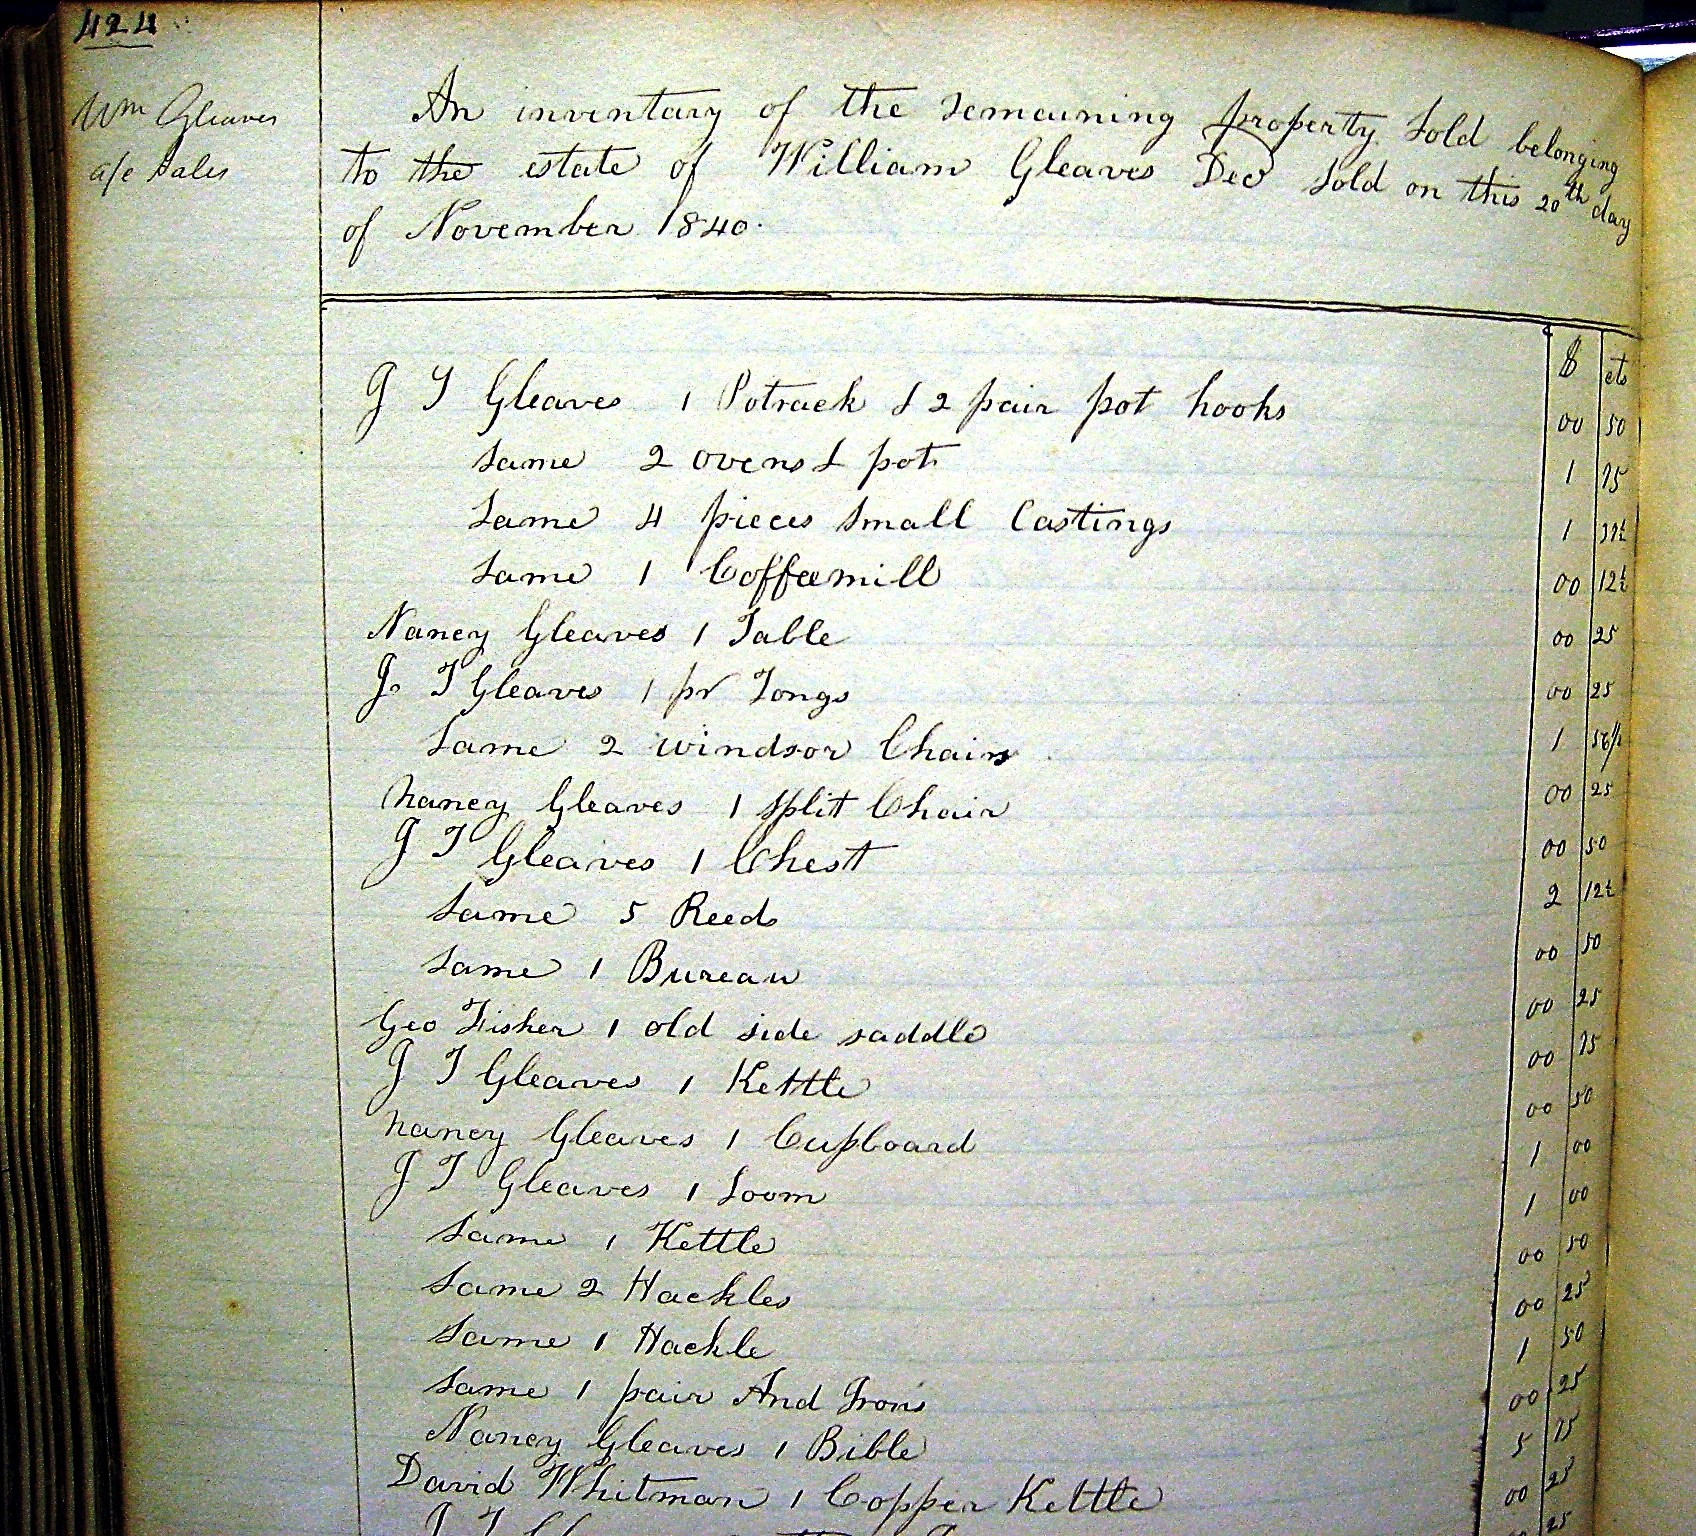 424
Wm Gleaves
a/c Sales
An inventary of the remeining property Sold belonging
to the estate of William Gleaves Decd Sold on this 20th day
of November 1840.
$ cts
J T Gleaves 1 Potrack & 2 pair pot hooks 00 50
Same 2 ovens & pot 1 75
Same 4 pieces Small Castings 1 37½
Same 1 Coffeemill 00 12½
Nancy Gleaves 1 Table 00 25
J. T Gleaves 1 pr Tongs 00 25
Same 2 windsor Chairs 1 56¼
Nancy Gleaves 1 Split Chair 00 25
J T Gleaves 1 Chest 00 50
Same 5 Reeds 2 12½
Same 1 Bureau 00 50
Geo Fisher 1 old side saddle 00 25
J T Gleaves 1 Kettle 00 75
Nancy Gleaves 1 Cupboard 00 50
J T Gleaves 1 Loom 1 00
Same 1 Kettle 1 00
Same 2 Hackles 00 50
Same 1 Hackle 00 25
Same 1 pair And Irons 1 50
Nancy Gleaves 1 Bible 00 25
David Whitman 1 Copper Kettle 5 75
J T
00 25
25